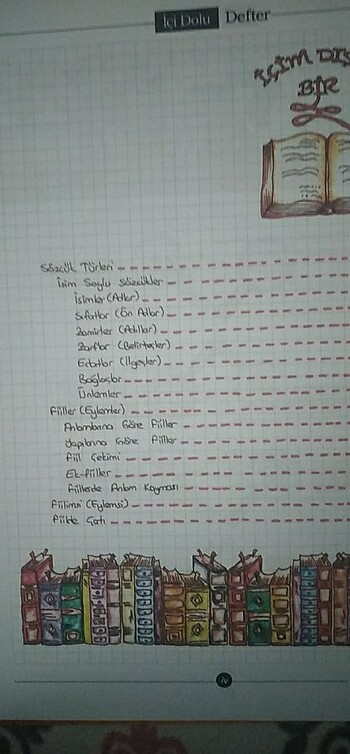 İçi Dolu Defter
İÇİM DIŞ
BİR
Sözcük Türleri
İsim Soylu Sözcükler
İsimler (Adlar)
Sıfatlar (Ön Adlar)
Zamirler (Adıllar)
Zarflar (Belirteçler)
Edatlar (İlgeçler)
Bağlaçlar
Ünlemler
Fiiller (Eylemler)
Anlamlarına Göre Fiiller
Yapılarına Göre Fiiller
Fiil Çekimi
Ek-fiiller
Fiillerde Anlam Kayması
Fiilimsi (Eylemsi)
Fiilde Çatı
iv